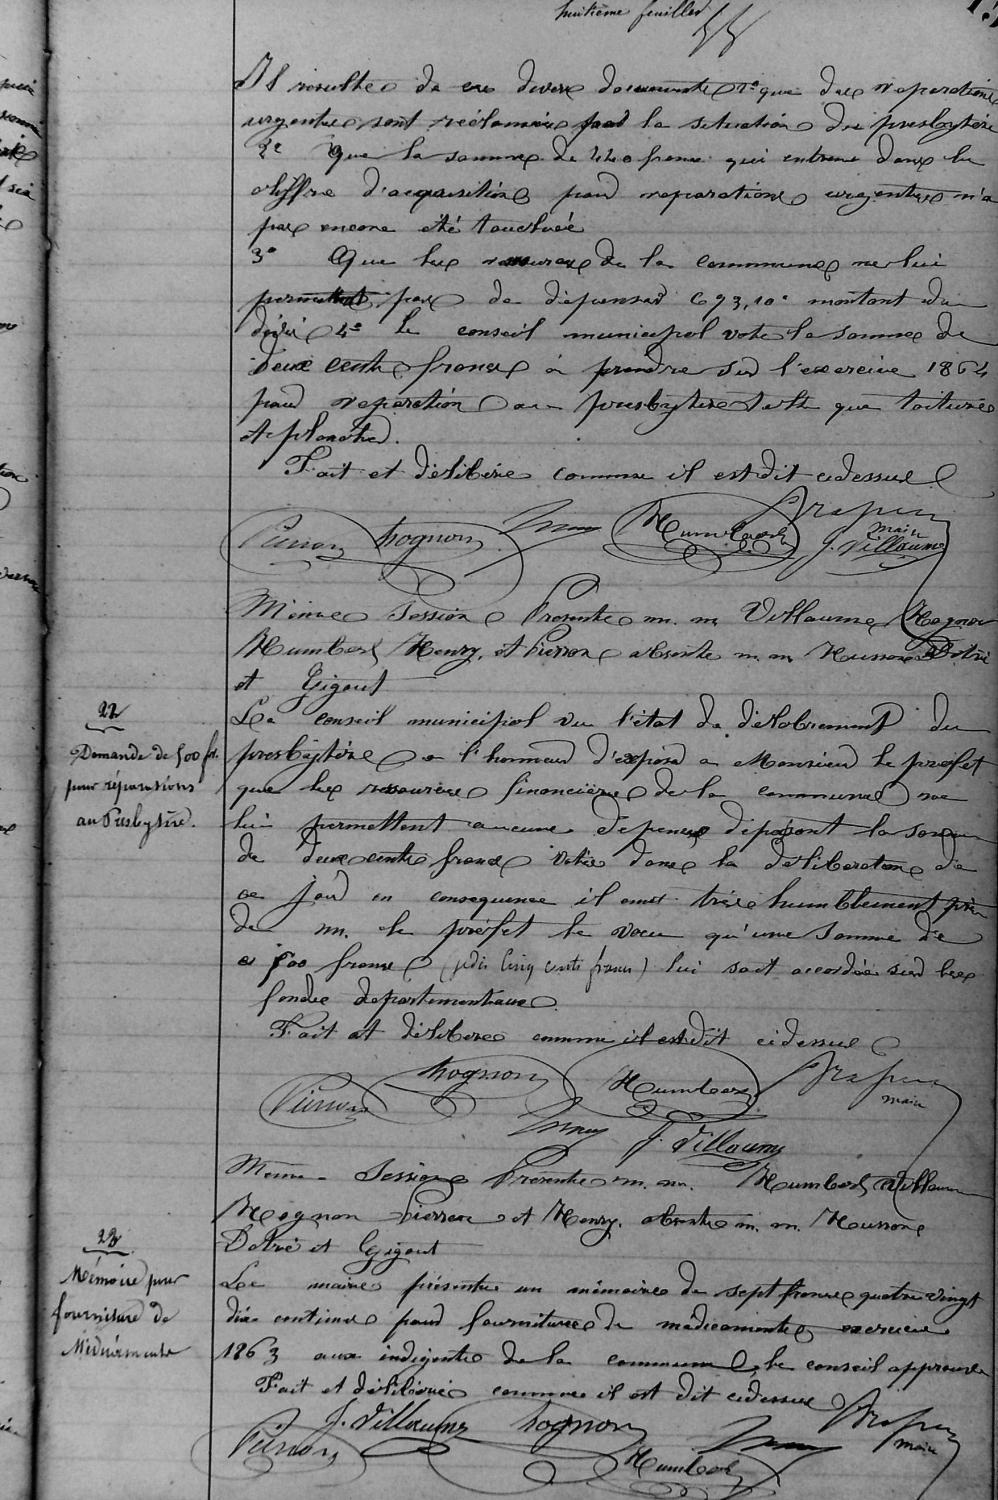 huitième feuillet
Il résulte de ces divers documents 1º que des reparations
urgentes sont réclamées pour la situation du presbytère
2º Que la somme de 440 francs qui entrene dans le
chiffre d'acquisition pour reparations urgentes n'a
pas encore été touchée
3º Que les ressources de la commune ne lui
permettent pas de dépenser 693,10c montant du
dévis 4º le conseil municipal vote la somme de
deux cents francs à prendre sur l'exercice 1864
pour reparation au presbytère telle que toitures
et plancher.
Fait et délibéré comme il est dit cidessus
Pierron Hognon Henry Humbert
maire
J. Villaume
Même Session Presents m. m. Villaume Hognon
Humbert Henry et Pierron absents m. m. Husson Dotré
et Gigout
22
Demande de 500 f.
pour réparations
au Presbytère.
Le conseil municipal vu l'état de délabrement du
presbytère a l'honneur d'exposer a Monsieur le préfet
que les ressources financières de la commune ne
lui permettent aucune dépense dépassant la somme
de deux cents francs votée dans la délibération de
ce jour en consequence il emet très humblement près
de m. le préfet le voeu qu'une somme de
500 francs (je dis cinq cents francs) lui soit accordée sur les
fonds departementaux.
Fait et délibéré comme il est dit cidessus
Pierron Hognon Humbert
maire
Henry J. Villaume
Même Session Presents m. m. Humbert Villaume
Hognon Pierron et Henry. absents m. m. Husson
Dotré et Gigout
23
Mémoire pour
fourniture de
Médicaments
Le maire présente un mémoire de sept francs quatre vingt
dix centimes pour fournitures de médicaments exercice
1863 aux indigents de la commune le conseil approuve
Fait et délibéré comme il est dit cidessus
J. Villaume Hognon
maire
Pierron Humbert Henry